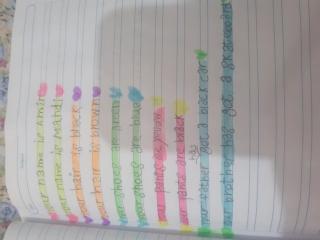 your name is Amir
your name is Mahdi
your hair is black
your hair is brown
your shoes are green
your shoes are blue
your pants is yellow
your pants are black
your father has got a black car
your brother has got a skateboard